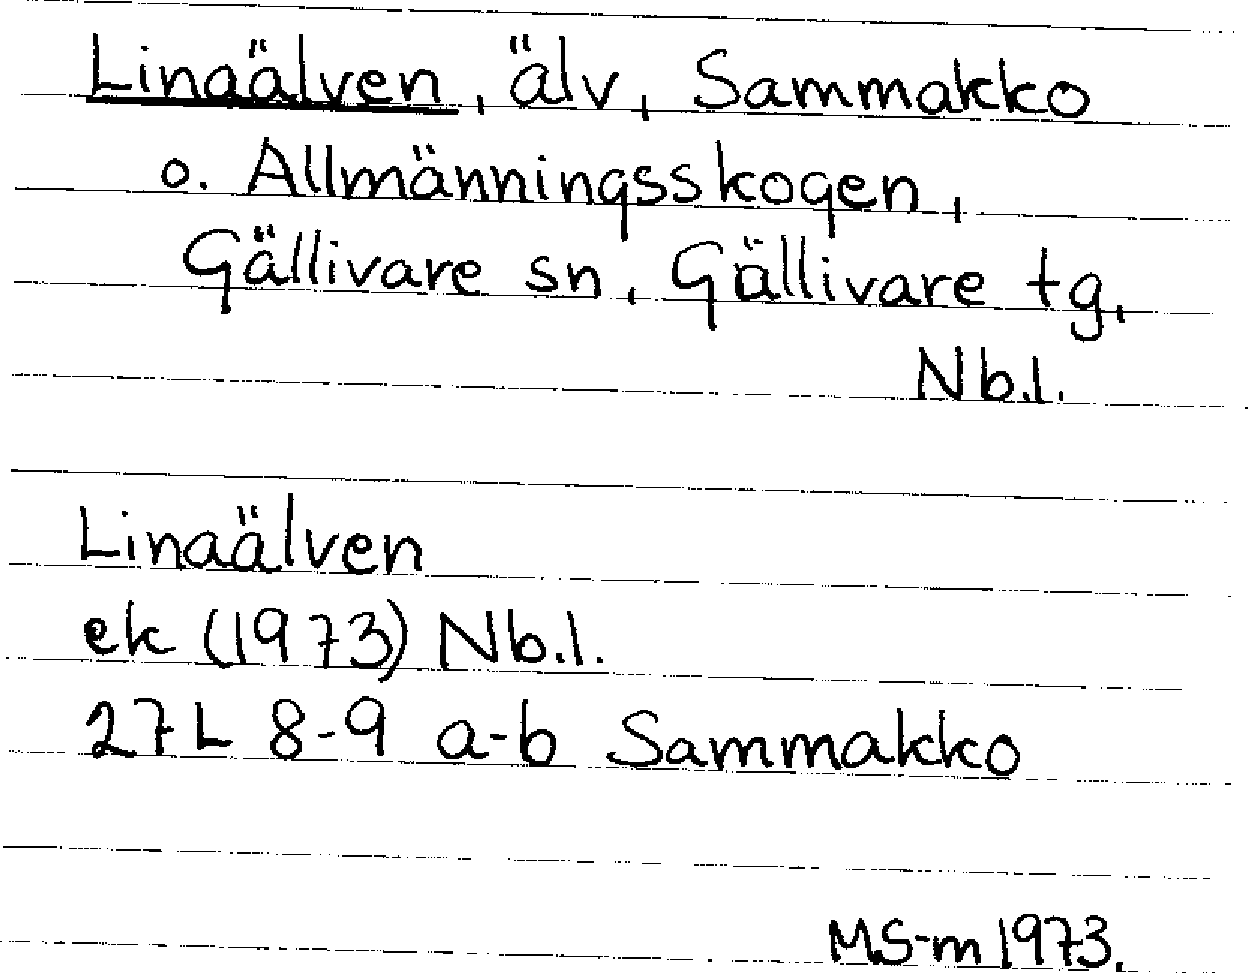 Linaälven, älv, Sammakko
o. Allmänningsskogen,
Gällivare sn, Gällivare tg,
Nb.l.
Linaälven
ek (1973) Nb.l.
27L 8-9 a-b Sammakko
MS-m 1973.